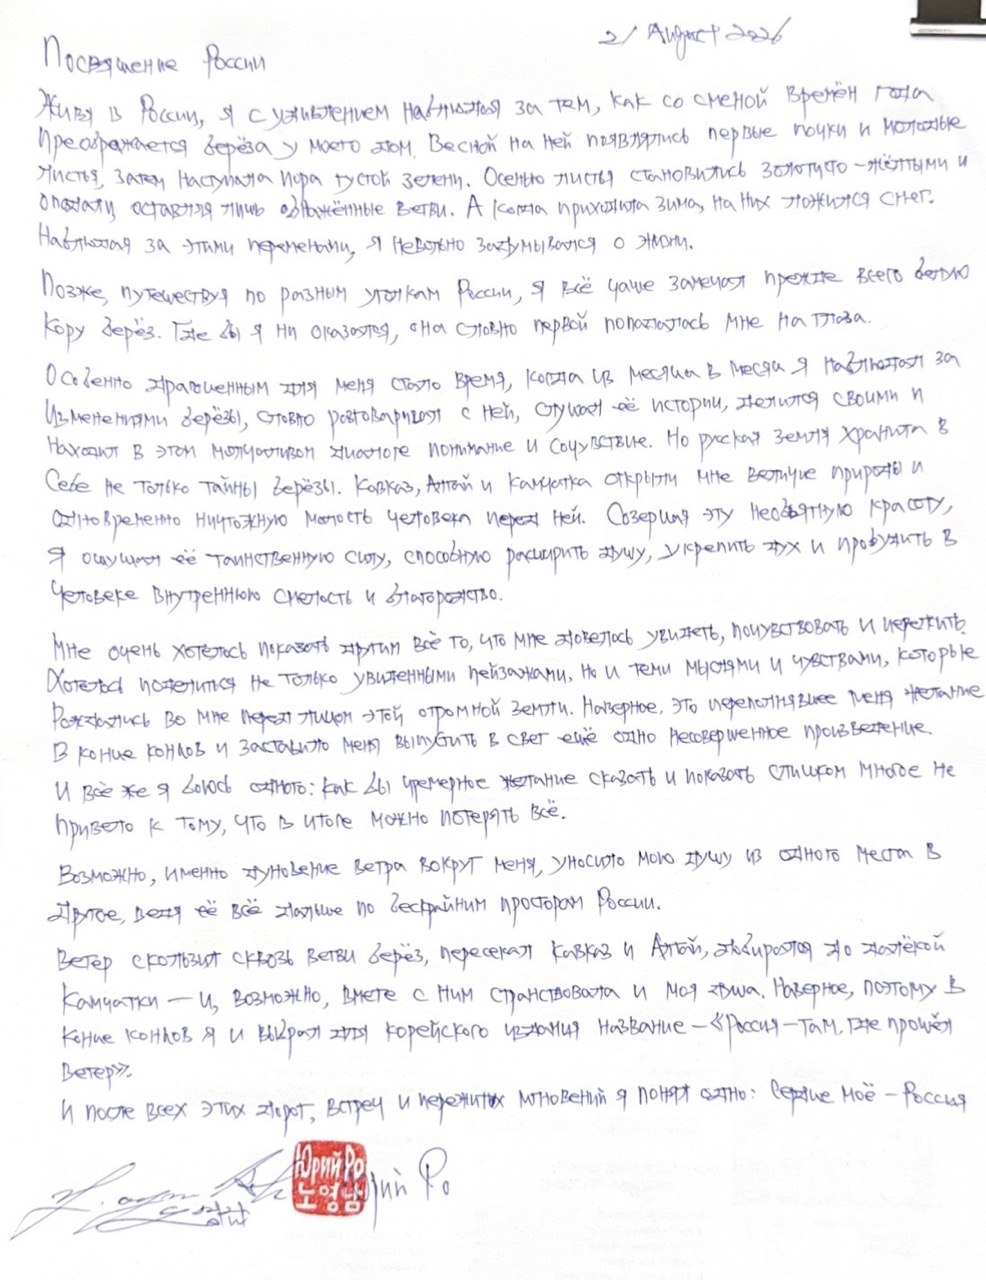 21 Август 2026
Посвящение России
Живя в России, я с удивлением наблюдал за тем, как со сменой времён года
преображается берёза у моего дома. Весной на ней появлялись первые почки и молодые
листья, затем наступала пора густой зелени. Осенью листья становились золотисто-жёлтыми и
опадали, оставляя лишь обнажённые ветви. А когда приходила зима, на них ложился снег.
Наблюдая за этими переменами, я невольно задумывался о жизни.
Позже, путешествуя по разным уголкам России, я всё чаще замечал прежде всего белую
кору берёз. Где бы я ни оказался, она словно первой попадалась мне на глаза.
Особенно драгоценным для меня стало время, когда из месяца в месяц я наблюдал за
изменениями берёзы, словно разговаривал с ней, слушал её истории, делился своими и
находил в этом молчаливом диалоге понимание и сочувствие. Но русская земля хранила в
себе не только тайны берёзы. Кавказ, Алтай и Камчатка открыли мне величие природы и
одновременно ничтожную малость человека перед ней. Созерцая эту необъятную красоту,
я ощущал её таинственную силу, способную расширить душу, укрепить дух и пробудить в
человеке внутреннюю смелость и благородство.
Мне очень хотелось показать другим всё то, что мне довелось увидеть, почувствовать и пережить.
Хотелось поделиться не только увиденными пейзажами, но и теми мыслями и чувствами, которые
рождались во мне перед лицом этой огромной земли. Наверное, это переполнявшее меня желание
в конце концов и заставило меня выпустить в свет ещё одно несовершенное произведение.
И всё же я боюсь одного: как бы чремерное желание сказать и показать слишком многое не
привело к тому, что в итоге можно потерять всё.
Возможно, именно дуновение ветра вокруг меня, уносило мою душу из одного места в
другое, ведя её всё дальше по бескрайним просторам России.
Ветер скользил сквозь ветви берёз, пересекал Кавказ и Алтай, добирался до далёкой
Камчатки — и, возможно, вместе с ним странствовала и моя душа. Наверное, поэтому в
конце концов я и выбрал для корейского издания название – «Россия – там, где прошёл
ветер».
И после всех этих дорог, встреч и пережитых мгновений я понял одно: Сердце моё – Россия
Юрий Ро
노영남
Юрий Ро